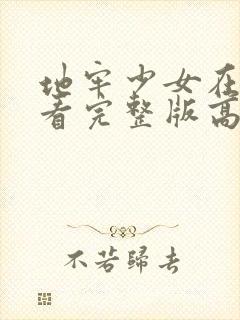 地牢少女在
看完整版高
不若归去